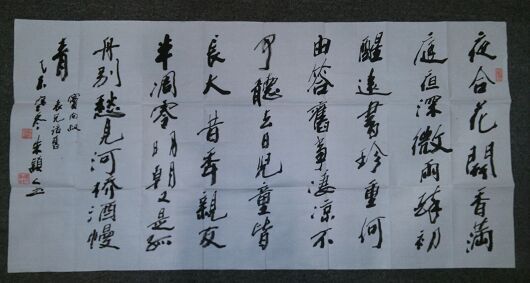 夜合花開香滿
庭夜深微雨醉初
醒遠書珍重何
由答舊事淒涼不
可聽去日兒童皆
長大昔年親友
半凋零明朝又是孤
舟别愁見河橋酒幔
青
竇向叔
表兄話舊
乙未